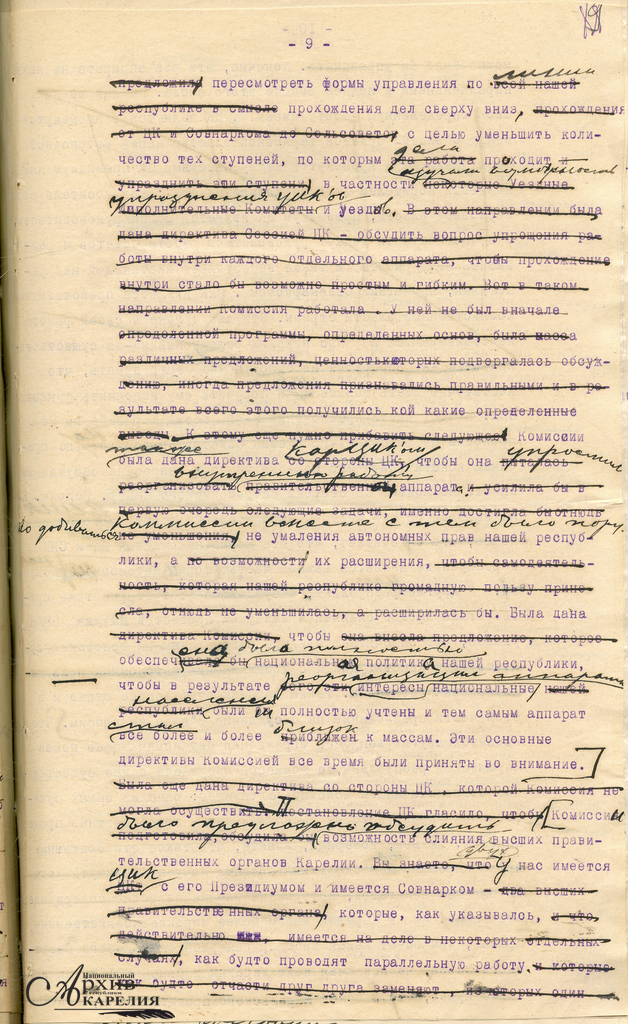 - 9 -
предложила пересмотреть формы управления по всей нашей линии
республике в смысле прохождения дел сверху вниз, прохождения
от ЦК и Совнаркома до Сельсовета, с целью уменьшить коли-
дела
чество тех ступеней, по которым эта работа проходит и
изучали возможность
упразднить эти ступени, в частности некоторые Уездные
упразднения УИК'ов
Исполнительные Комитеты и уездов. В этом направлении была
дана директива Сессией ЦК - обсудить вопрос упрощения ра-
боты внутри каждого отдельного аппарата, чтобы прохождение
внутри стало бы возможно простым и гибким. Вот в таком
направлении Комиссия работала. У ней не был вначале
определенной программы, определенных основ, была масса
различных предложений, ценность которых подвергалась обсуж-
дению, иногда предложения признавались правильными и в ре-
зультате всего этого получились кой какие определенные
выводы. К этому еще нужно прибавить следующее: Комиссии
также КарЦИК'ом упростила
была дана директива со стороны ЦК, чтобы она пыталась
внутреннюю работу
реорганизовать правительственный аппарат и усилила бы в
первую очередь следующие задачи, именно достигла бы отнюдь
Комиссии вместе с тем было пору-
но добиваться
не уменьшения, не умаления автономных прав нашей респуб-
лики, а по возможности их расширения, чтобы самодеятель-
ность, которая нашей республике громадную пользу прине-
сла, отнюдь не уменьшилась, а расширилась бы. Была дана
директива Комиссии, чтобы она внесла предложение, которое
она была полностью
обеспечивало бы национальная политика нашей республики,
реорганизации аппарата
чтобы в результате этого эти интересы национальные нашей
населения
республики были и полностью учтены и тем самым аппарат
стал близок
все более и более приближен к массам. Эти основные
директивы Комиссией все время были приняты во внимание.
Была еще дана директива со стороны ЦК, которой Комиссия не
могла осуществить. Постановление ЦК гласило, чтобы Комиссии
было предложено обсудить
подготовила, обсудила бы возможность слияния высших прави-
двух
тельственных органов Карелии. Вы знаете, что У нас имеется
ЦИК
ЦК с его Президиумом и имеется Совнарком - два высших
правительственных органа, которые, как указывалось, и что
действительно имеется на деле в некоторых отдельных
случаях, как будто проводят параллельную работу и которые
как будто отчасти друг друга заменяют, из которых один
Национальный
АРХИВ
Республики
КАРЕЛИЯ